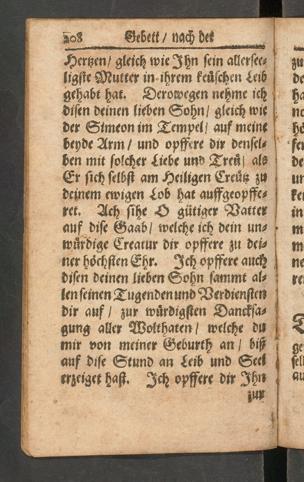 208 Gebett / nach der
Hertzen / gleich wie Ihn sein allersee-
ligste Mutter in ihrem keüschen Leib
gehabt hat. Derowegen nehme ich
disen deinen lieben Sohn / gleich wie
der Simeon im Tempel / auf meine
beyde Arm / und opffere dir densel-
ben mit solcher Liebe und Treü / als
Er sich selbst am Heiligen Creütz zu
deinem ewigen Lob hat auffgeopffe-
ret. Ach sihe O gütiger Vatter
auf dise Gaab / welche ich dein un-
würdige Creatur dir opffere zu dei-
ner höchsten Ehr. Ich opffere auch
disen deinen lieben Sohn sammt al-
len seinen Tugenden und Verdiensten
dir auf / zur würdigsten Dancksa-
gung aller Wolthaten / welche du
mir von meiner Geburth an / biß
auf dise Stund an Leib und Seel
erzeiget hast. Ich opffere dir Ihn
zur